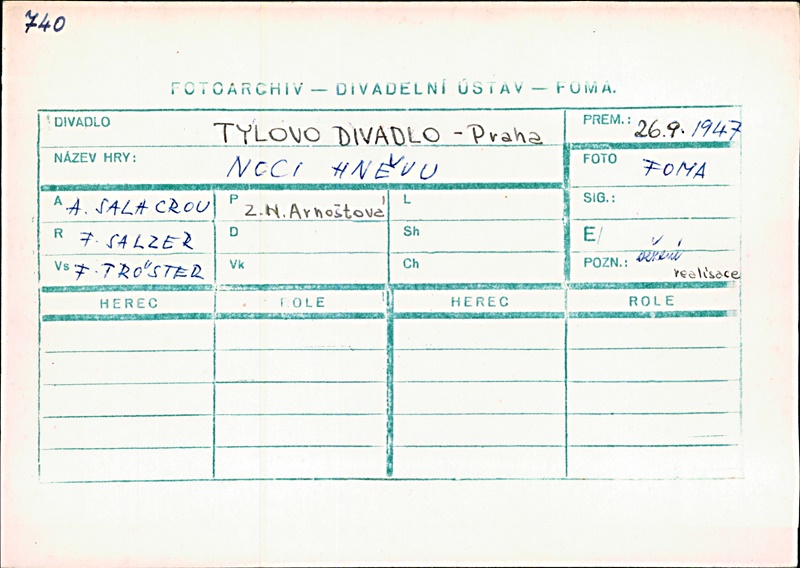 740
FOTOARCHIV — DIVADELNÍ ÚSTAV — FOMA.
DIVADLO TYLOVO DIVADLO - Praha PREM.: 26.9.1947
NÁZEV HRY: NOCI HNĚVU FOTO FOMA
A A. SALACROU P Z.N. Arnoštová L SIG.:
R F. SALZER D Sh E/
Vs F. TRÖSTER Vk Ch POZN.:
realisace
HEREC ROLE HEREC ROLE